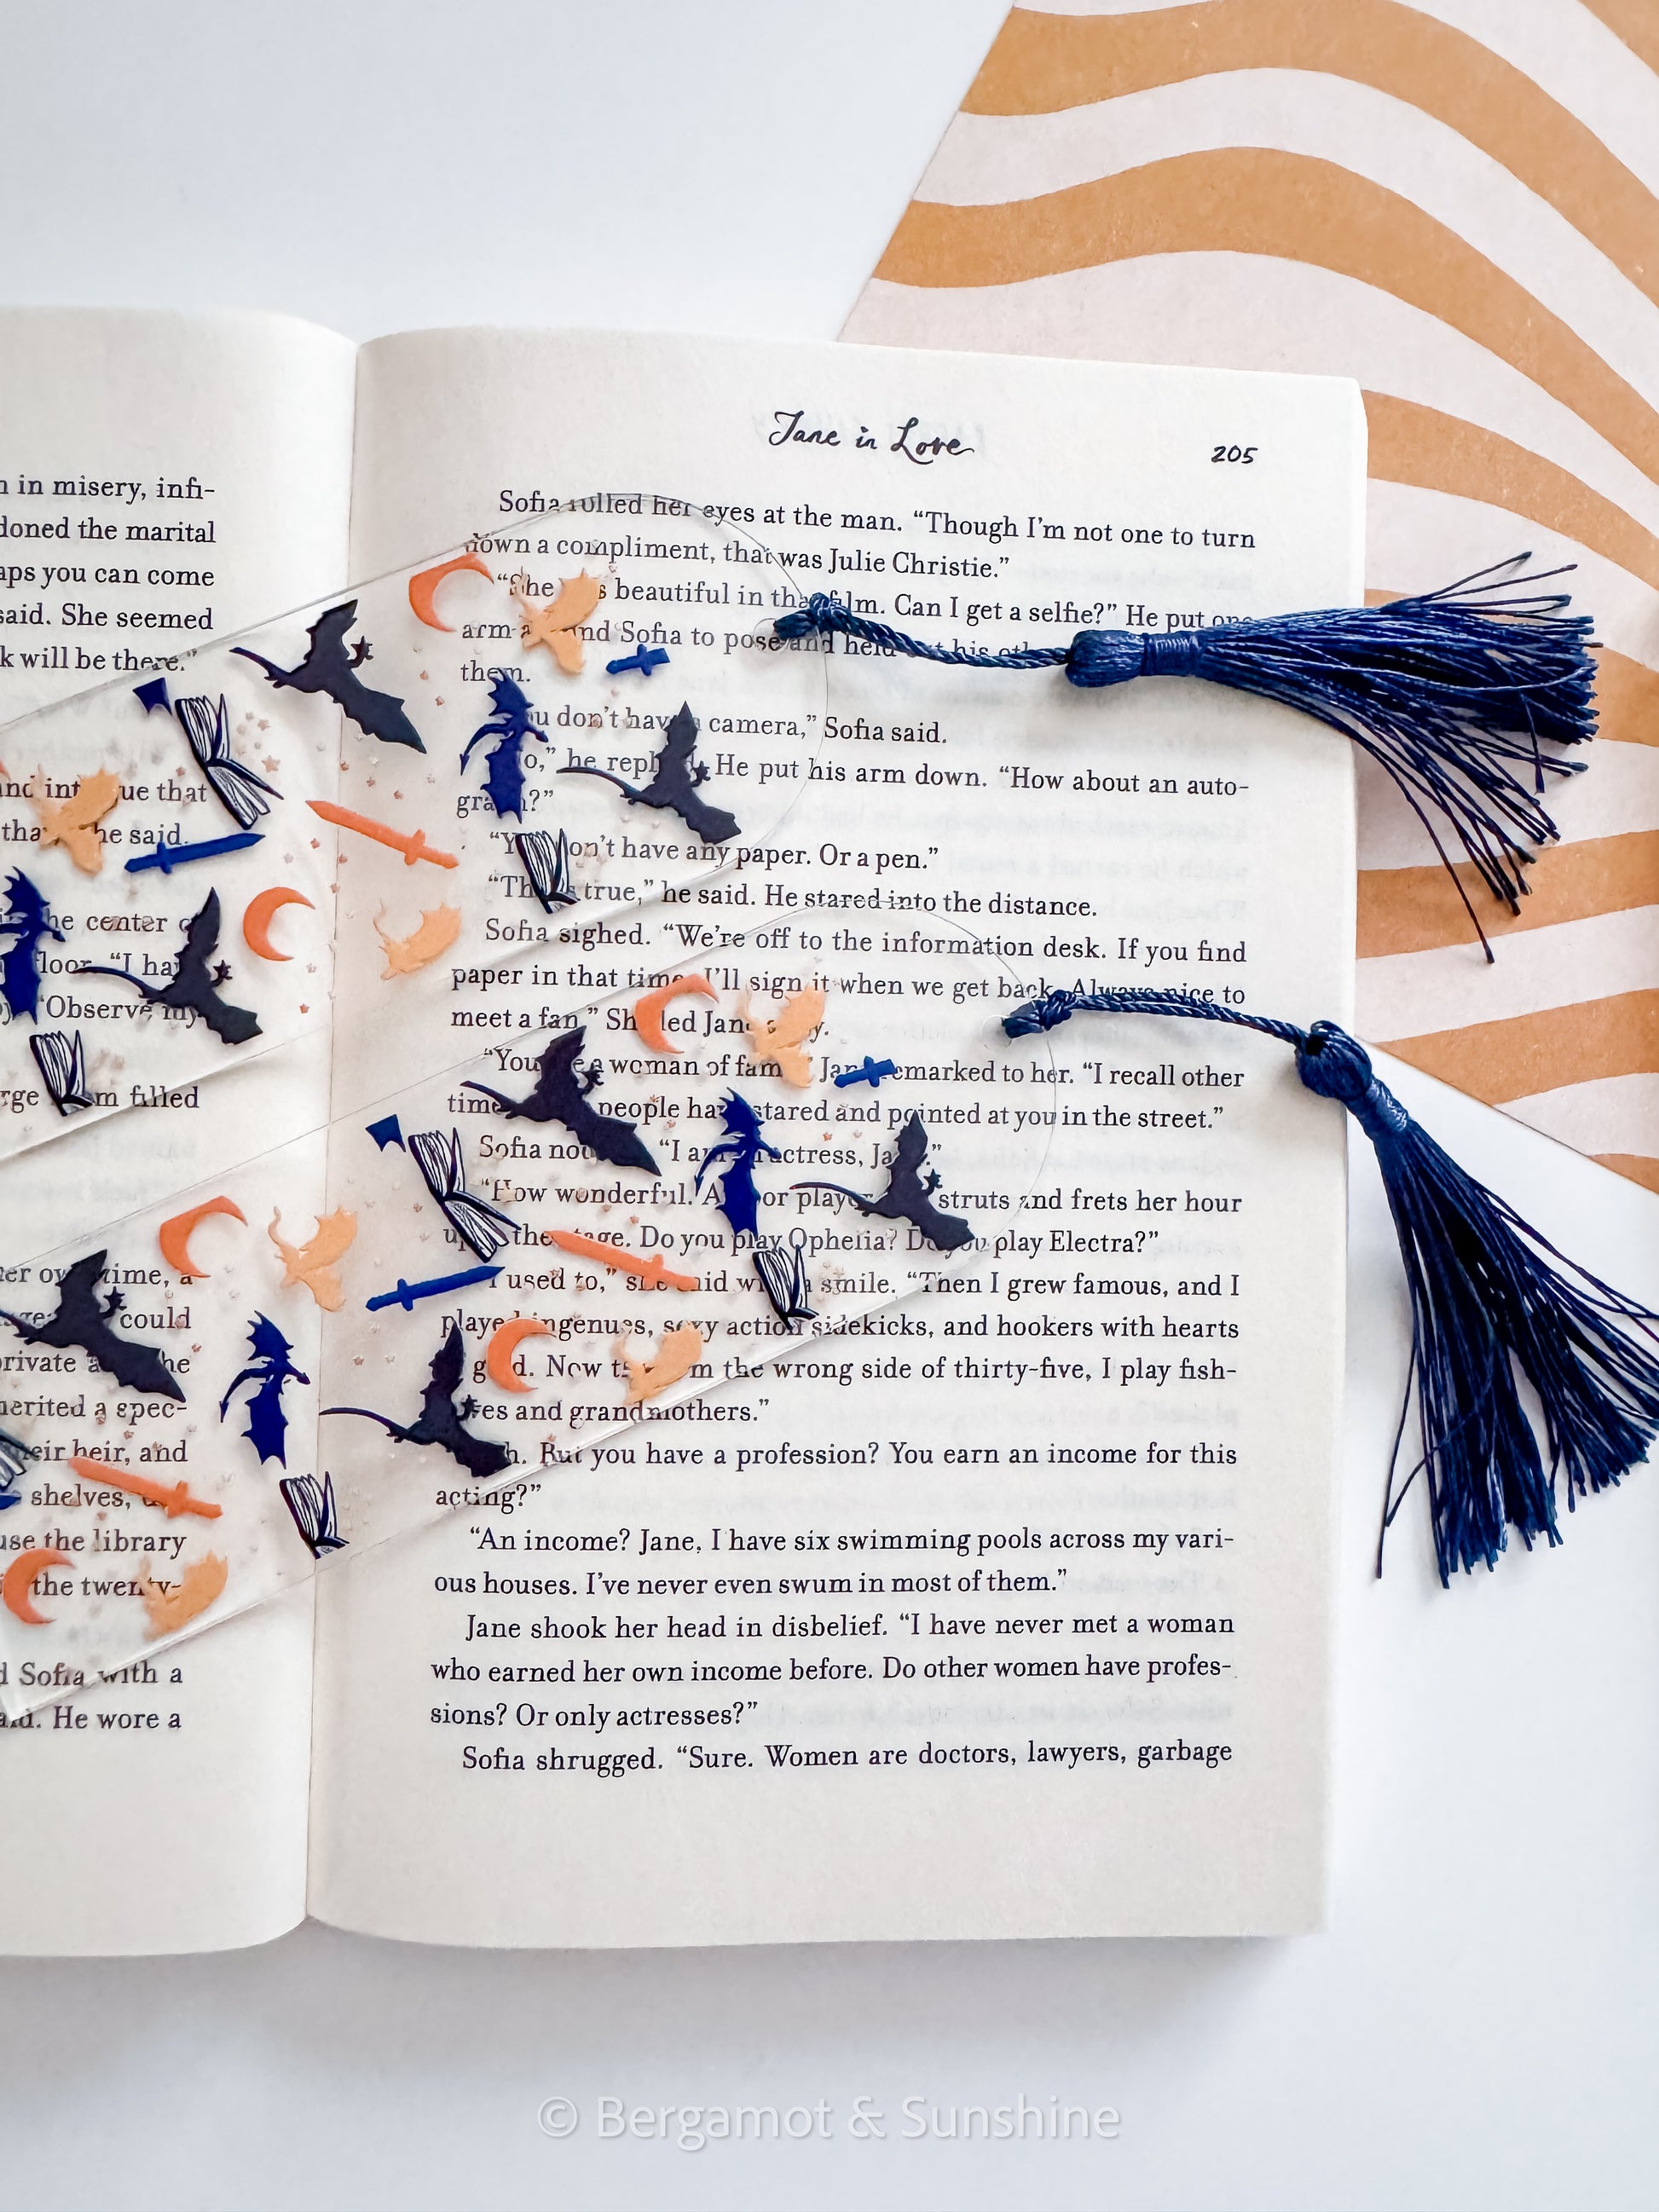 n in misery, infi-
doned the marital
aps you can come
said. She seemed
k will be there.”
that
he said.
he center
floor. “I
“Observe my
filled
time, a
could
private
he
herited a spec-
heir heir, and
shelves,
use the library
the twenty-
d Sofia with a
aid. He wore a
Jane in Love
205
Sofia rolled her eyes at the man. “Though I’m not one to turn
down a compliment, that was Julie Christie.”
“She beautiful in that film. Can I get a selfie?” He put one
arm Sofia to pose and held his
them.
don’t have camera,” Sofia said.
he He put his arm down. “How about an auto-
“You don’t have any paper. Or a pen.”
true,” he said. He stared into the distance.
Sofia sighed. “We’re off to the information desk. If you find
paper in that time, I’ll sign it when we get back. Always nice to
meet a fan.” Jane
“You a woman of remarked to her. “I recall other
people have stared and pointed at you in the street.”
Sofia “I actress,
“How wonderful. A struts and frets her hour
the stage. Do you play Ophelia? Do you play Electra?”
used to,” she said with a smile. “Then I grew famous, and I
played ingenues, sexy action sidekicks, and hookers with hearts
Now the wrong side of thirty-five, I play fish-
wives and grandmothers.”
But you have a profession? You earn an income for this
acting?”
“An income? Jane, I have six swimming pools across my vari-
ous houses. I’ve never even swum in most of them.”
Jane shook her head in disbelief. “I have never met a woman
who earned her own income before. Do other women have profes-
sions? Or only actresses?”
Sofia shrugged. “Sure. Women are doctors, lawyers, garbage
© Bergamot & Sunshine